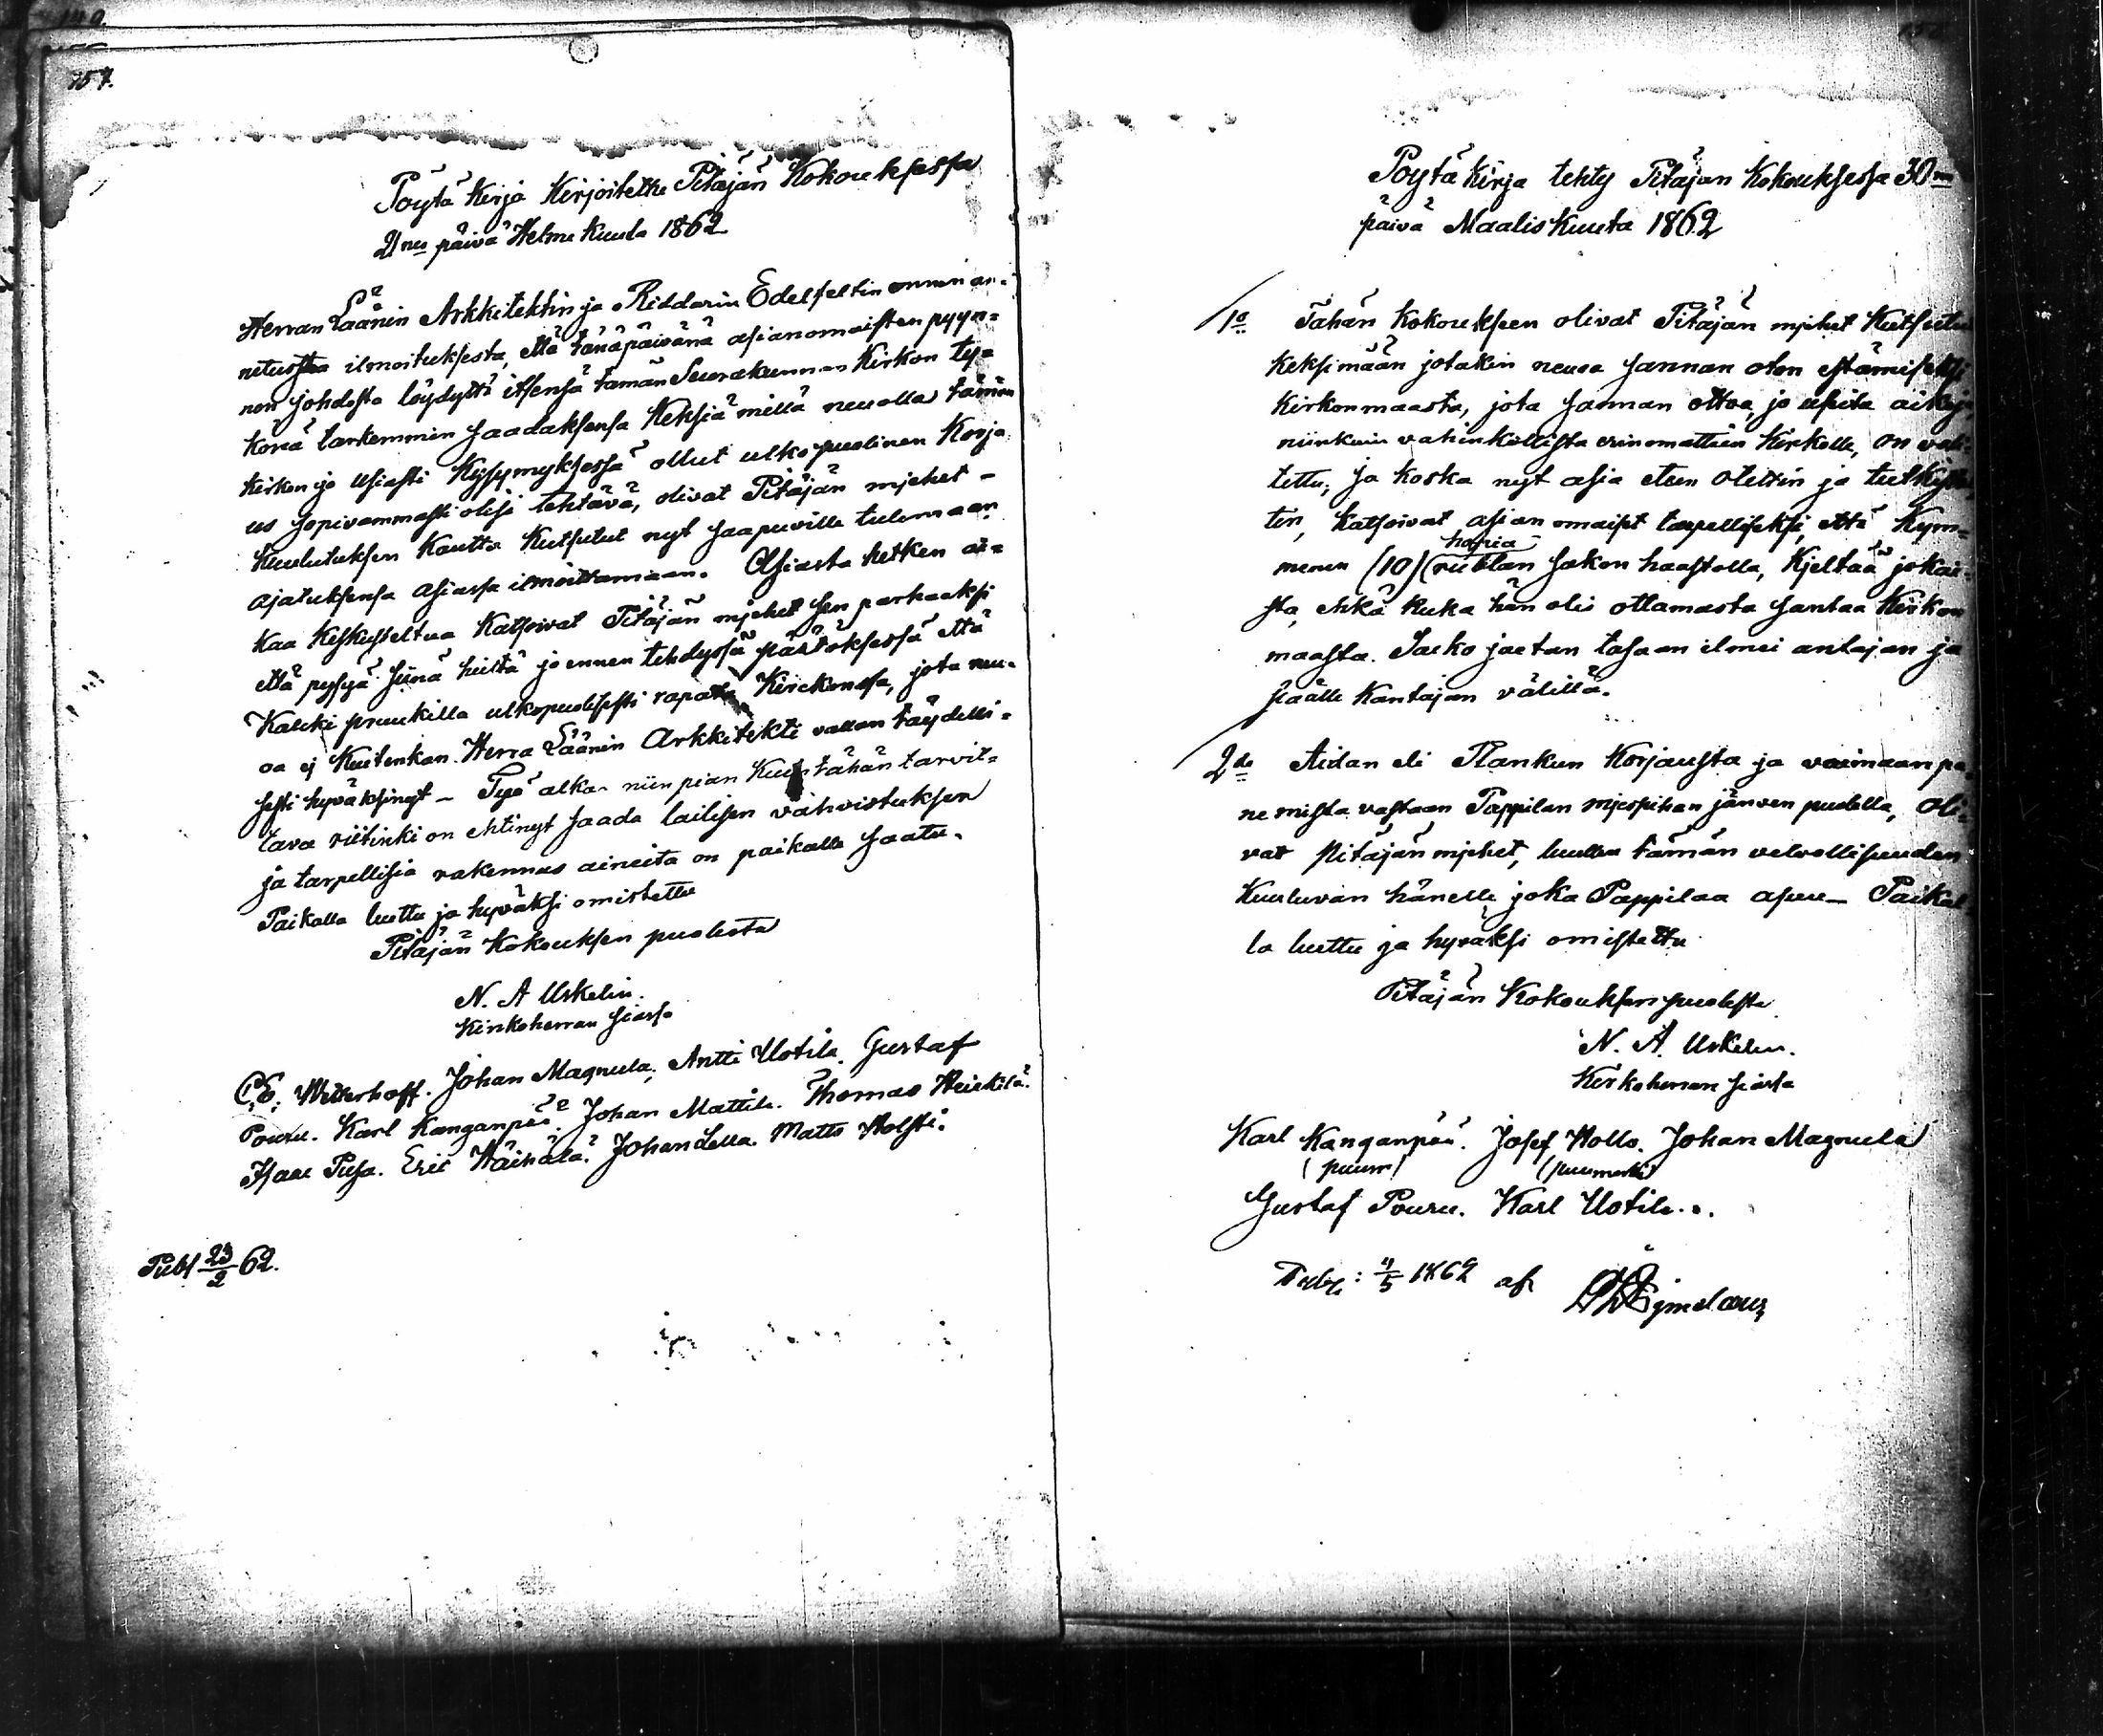 157.
Pöytä Kirja Kirjoitettu Pitäjän Kokouksessa
21nes päivä Helme Kuuta 1862
Herran Läänin Arkkitektin ja Riddarin Edelfeltin ennen an-
netusta ilmoituksesta, että tänäpäivänä asianomaisten pyyn-
nön johdosta löydyttä itsensä tämän Seurakunnan Kirkon ty-
könä tarkemmin saadaksensa Keksiä millä neuolla tämän
kirkon jo usiasti Kysymyksessä ollut ulkopuolinen Korja
us sopivammasti olisi tehtävä, olivat Pitäjän mjehet -
Kuulutuksen Kautta Kutsutut nyt saapuville tulemaan
ajatuksensa asiassa ilmoittamaan. Asiasta hetken ai-
kaa Keskusteltua Katsoivat Pitäjän mjehet sen parhaaksi
että pysyä siinä heiltä jo ennen tehdyssä päätöksessä että
Kalcki pruukilla ulkopuolisesti rapata Kirckonsa, jota neu-
oa ej Kuitenkan Herra Läänin Arkkitekti vallan täydelli-
sesti hyväksinyt - Työ alkaa niin pian Kuin tähän tarvit-
tava riitinki on ehtinyt saada lailisen vahvistuksen
ja tarpellisia rakennus aineita on paikalle saatu.
Paikalla luettu ja hyväksi omistettu
Pitäjän Kokouksen puolesta
N. A Uskelin.
Kirkoherran siassa
C. E. Wetterhoff. Johan Magnula, Antti Uotila. Gustaf
Pouru. Karl Kanganpää. Johan Mattila. Thomas Heickilä.
Isaac Pusa. Eric Häihälä. Johan Lella. Matts Holsti.
Publ 23/2 62.
Pöytä Kirja tehty Pitäjän Kokouksessa 30m
päivä Maalis Kuuta 1862
1o Tähän Kokoukseen olivat Pitäjän mjehet Kutsutu
Keksimään jotakin neuoa sannan oton estämiseksi
Kirkonmaasta, jota sannan ottoa, jo usiita aikoja
niinkuin vahinkollista erinomattain Kirkolle, on vali-
tettu; ja koska nyt asia eteen otettiin ja tutkist
tin, katsoivat asianomaiset tarpelliseksi, että Kym-
menen (10) hopia rublan sakon haastolla, Kjeltää jokai-
sta, ehkä kuka hän olis ottamasta santaa Kirkon
maasta. Sacko jaetan tasaan ilmi antajan ja
päälle kantajan välillä.
2do Aidan eli Plankun Korjausta ja voimaan pa
nemista vastaan Pappilan mjespihan järven puolella, Oli-
vat Pitäjän mjehet, luullen tämän velvollisuuden
Kuuluvan hänelle joka Pappilaa asuu - Paikal
la luettu ja hyväksi omistettu
Pitäjän Kokouksen puolesta
N. A. Uskelin.
Kirkoherran siassa
Karl Kanganpää. Josef Hollo. Johan Magnula
(puum) (puumerki)
Gustaf Pouru. Karl Uotila.
1862 af